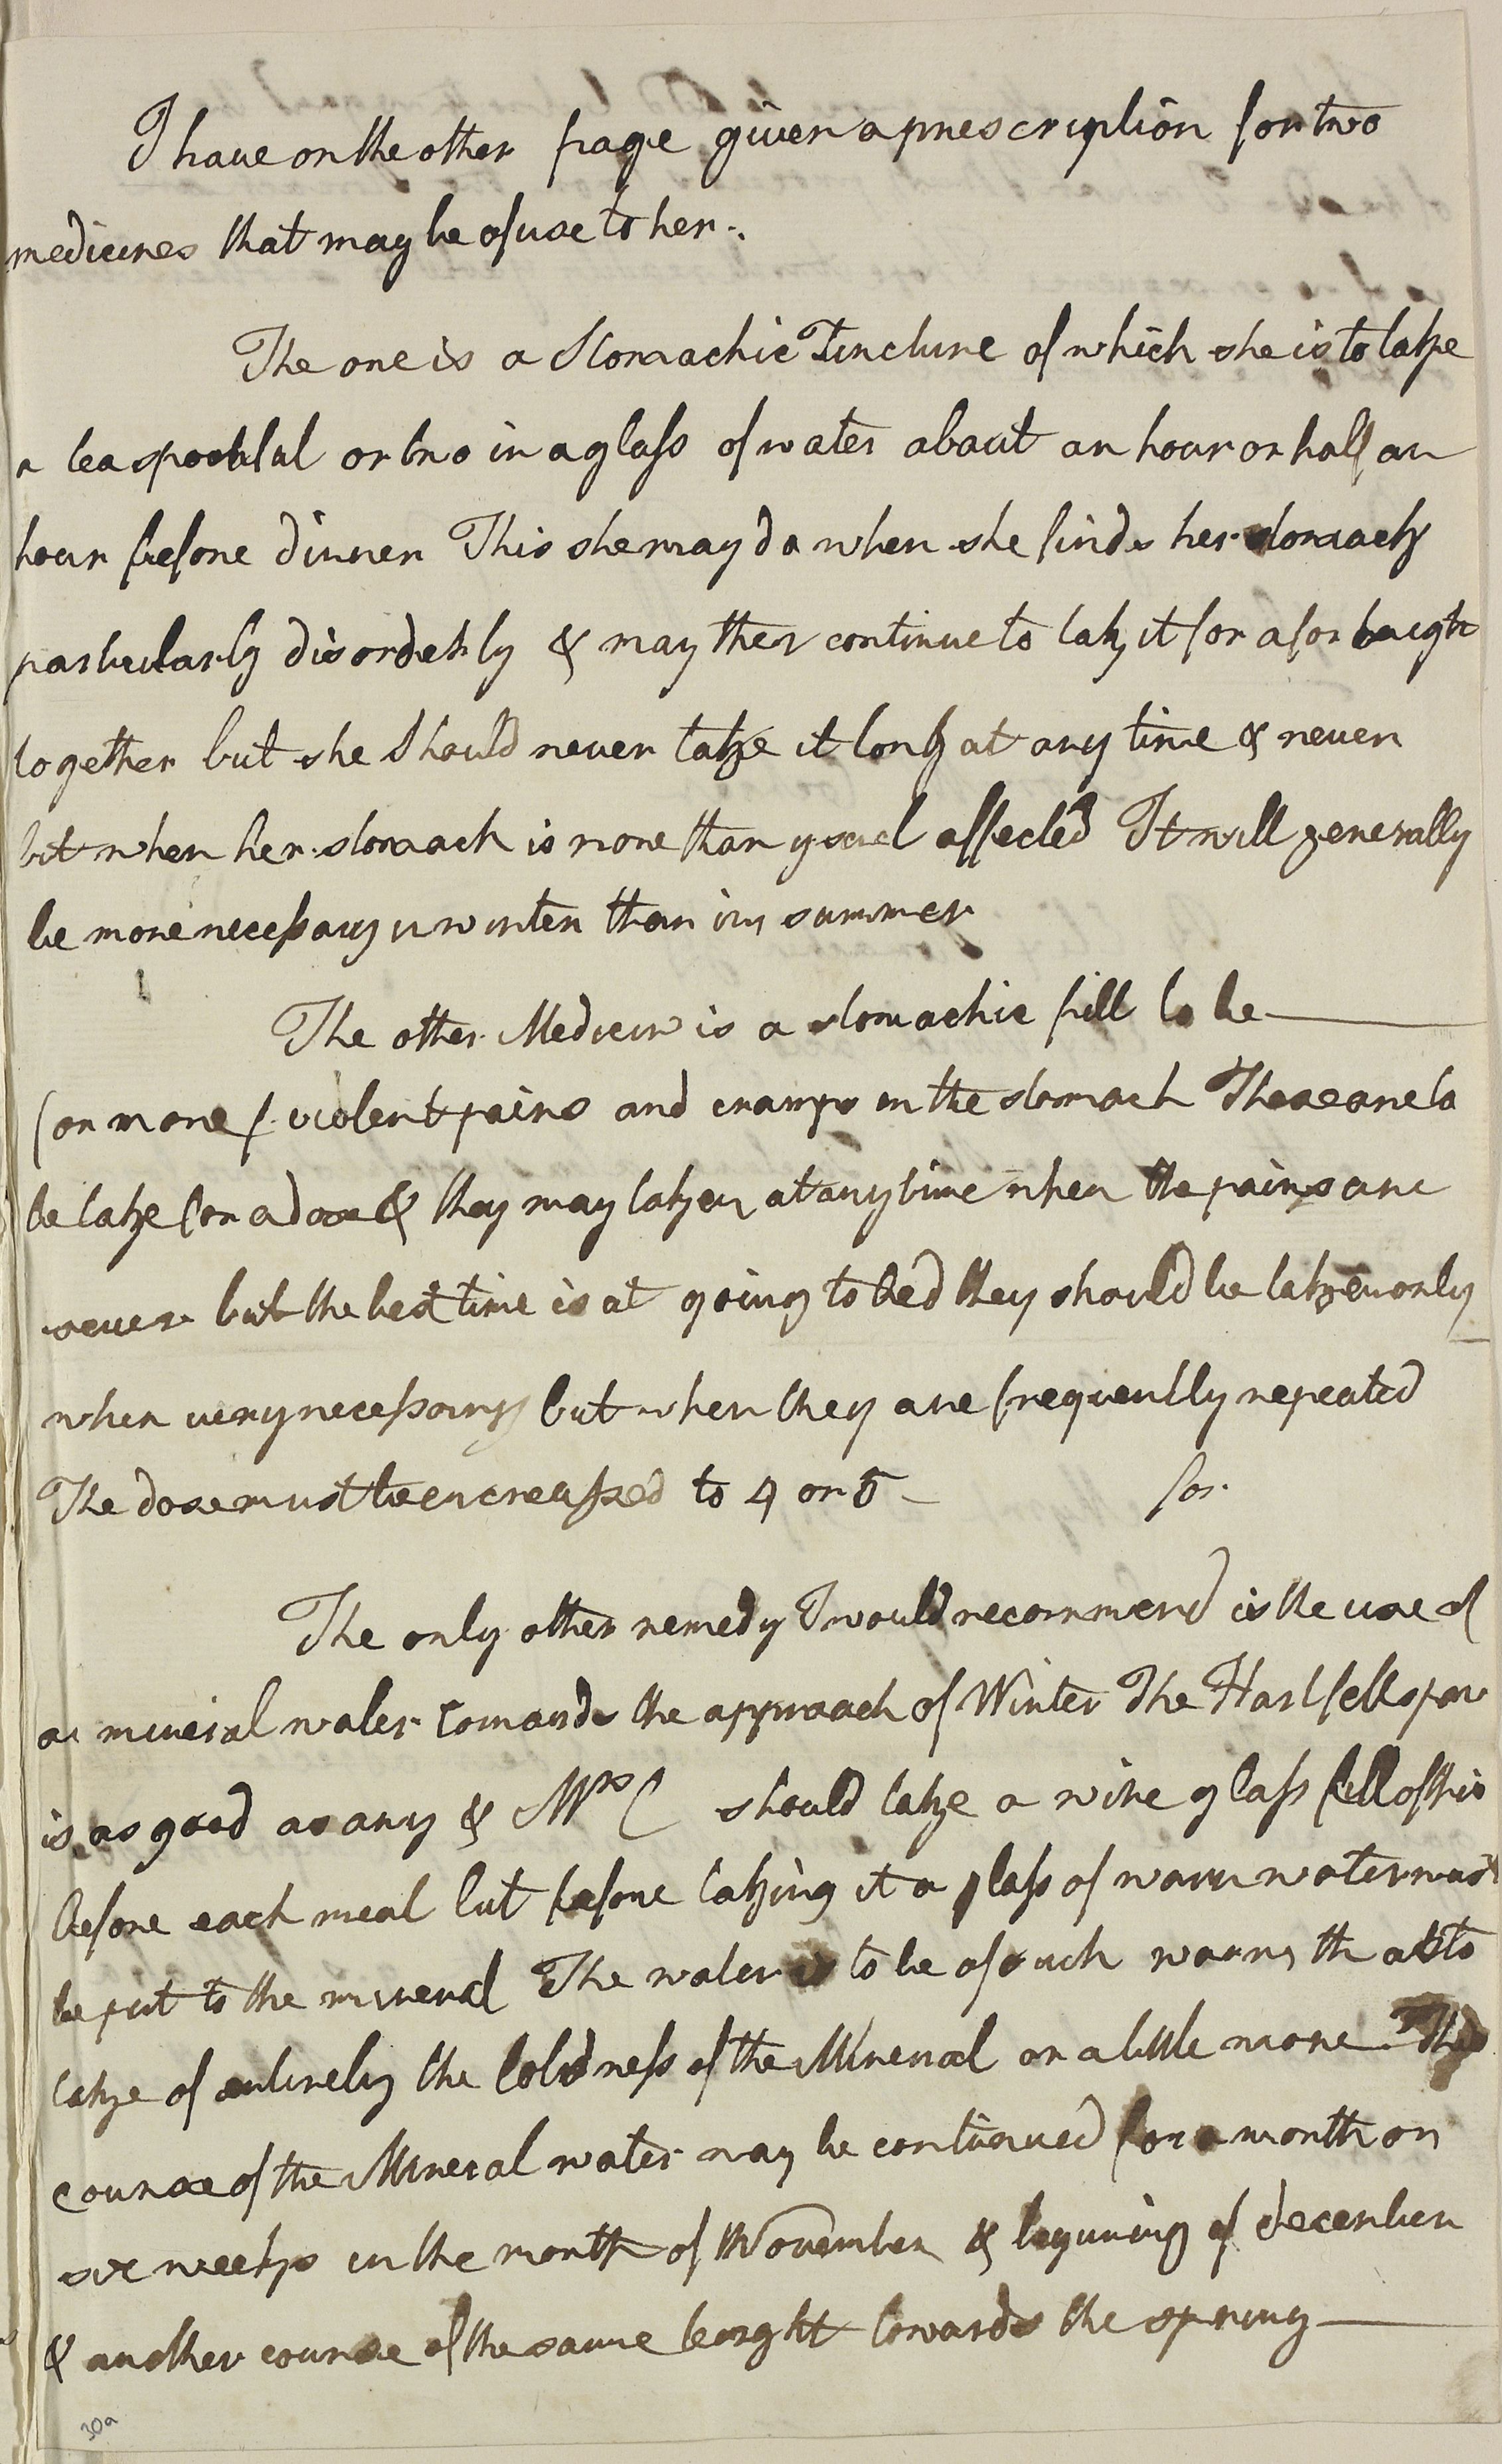 I have on the other page given a prescription for two
medicines that may be of use to her.
The one is a Stomachic Tincture of which she is to take
a teaspoonful or two in a glass of water about an hour or half an
hour before dinner This she may do when she finds her stomach
particularly disorderly & may then continue to take it for a for
together but she Should never take it long at any time & never
but when her stomach is more than usual affected It will generally
be more necessary in winter than in summer
The other Medicin is a stomachic pill to be
for more violent pains and cramps in the stomach These are to
be take for a dose & they may taken at any time when the pains are
sever but the best time is at going to bed they should be taken only
when very necessary but when they are frequently repeated
The dose must be encreassed to 4 or 5 for
The only other remedy I would recommend is the use of
a mineral water towards the approach of Winter The Hartfell spaw
is as good as any & Mrs C should take a wine glass full of this
before each meal but before taking it a glass of warm water must
be put to the mineral The water is to be of such warmth as to
take of entirely the coldness of the Mineral or a little more The
course of the Mineral water may be continued for a month or
six weeks in the month of November & begining of december
& another course of the same lenght towards the spring
30a